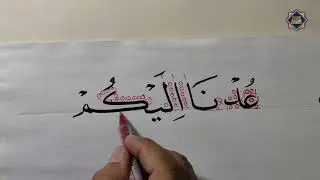 عُدْنَا إِلَيْكُمْ